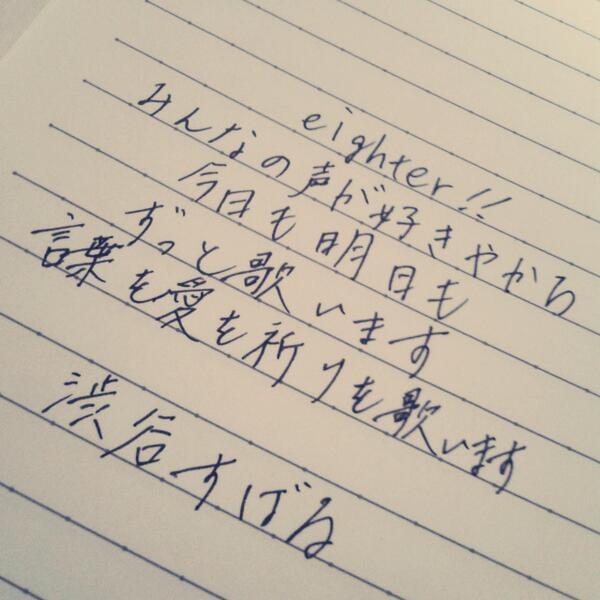 eighter!!
みんなの声が好きやから
今日も明日も
ずっと歌います
言葉を愛を祈りを歌います
渋谷すばる